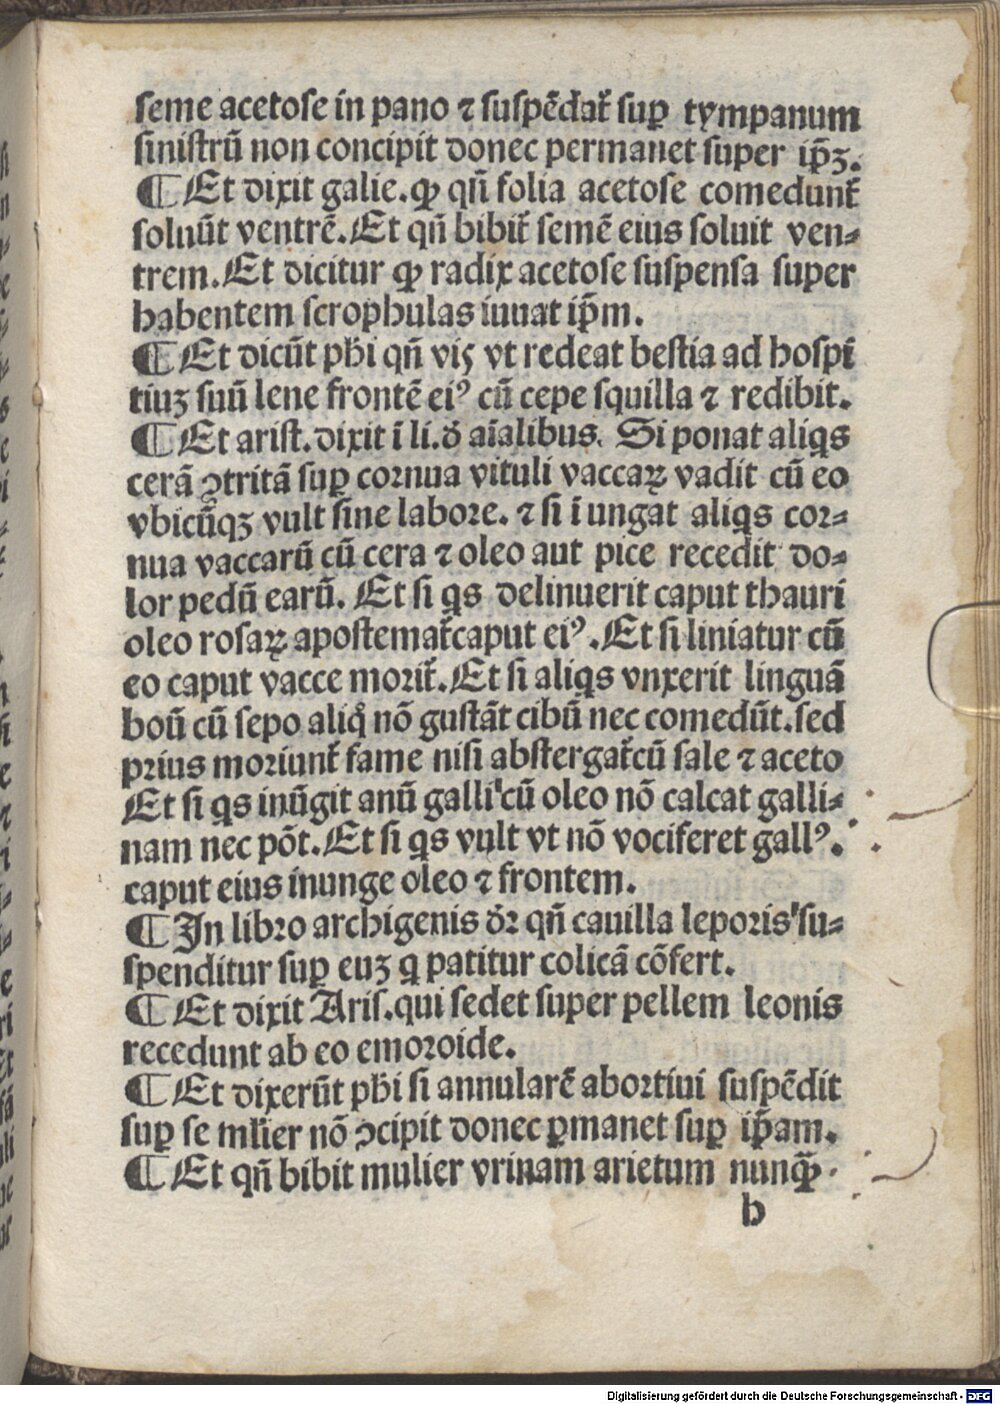 seme acetose in pano ⁊ suspēdat᷑ suꝑ tympanum
sinistrū non concipit donec permanet super ip̄ꝫ.
¶ Et dixit galie. ꝙ qn̄ folia acetose comedunt᷑
soluūt ventrē. Et qn̄ bibit᷑ semē eius soluit ven⸗
trem. Et dicitur ꝙ radix acetose suspensa super
habentem scrophulas iuuat ip̄m.
¶ Et dicūt ph̄i qn̄ vis vt redeat bestia ad hospi
tiuꝫ suū lene frontē eiꝰ cū cepe squilla ⁊ redibit.
¶ Et arist. dixit ī li. d̄ aīalibus. Si ponat aliqs
cerā ꝯtritā suꝑ cornua vituli vaccaꝝ vadit cū eo
vbicūqꝫ vult sine labore. ⁊ si ī ungat aliqs cor⸗
nua vaccarū cū cera ⁊ oleo aut pice recedit do⸗
lor pedū earū. Et si qs delinuerit caput thauri
oleo rosaꝝ apostemat᷑ caput eiꝰ. Et si liniatur cū
eo caput vacce morit᷑. Et si aliqs vnxerit linguā
boū cū sepo aliq° nō gustāt cibū nec comedūt. sed
prius moriunt᷑ fame nisi abstergat᷑ cū sale ⁊ aceto
Et si qs inūgit anū galli cū oleo nō calcat galli⸗
nam nec pōt. Et si qs vult vt nō vociferet gallꝰ.
caput eius inunge oleo ⁊ frontem.
¶ In libro archigenis dr̄ qn̄ cauilla leporis su⸗
spenditur suꝑ euꝫ q patitur colicā cōfert.
¶ Et dixit Aris. qui sedet super pellem leonis
recedunt ab eo emoroide.
¶ Et dixerūt ph̄i si annularē abortiui suspēdit
suꝑ se ml̄ier nō ꝯcipit donec ꝑmanet suꝑ ip̄am.
¶ Et qn̄ bibit mulier vrinam arietum nunꝙ̄
b
Digitalisierung gefördert durch die Deutsche Forschungsgemeinschaft - DFG